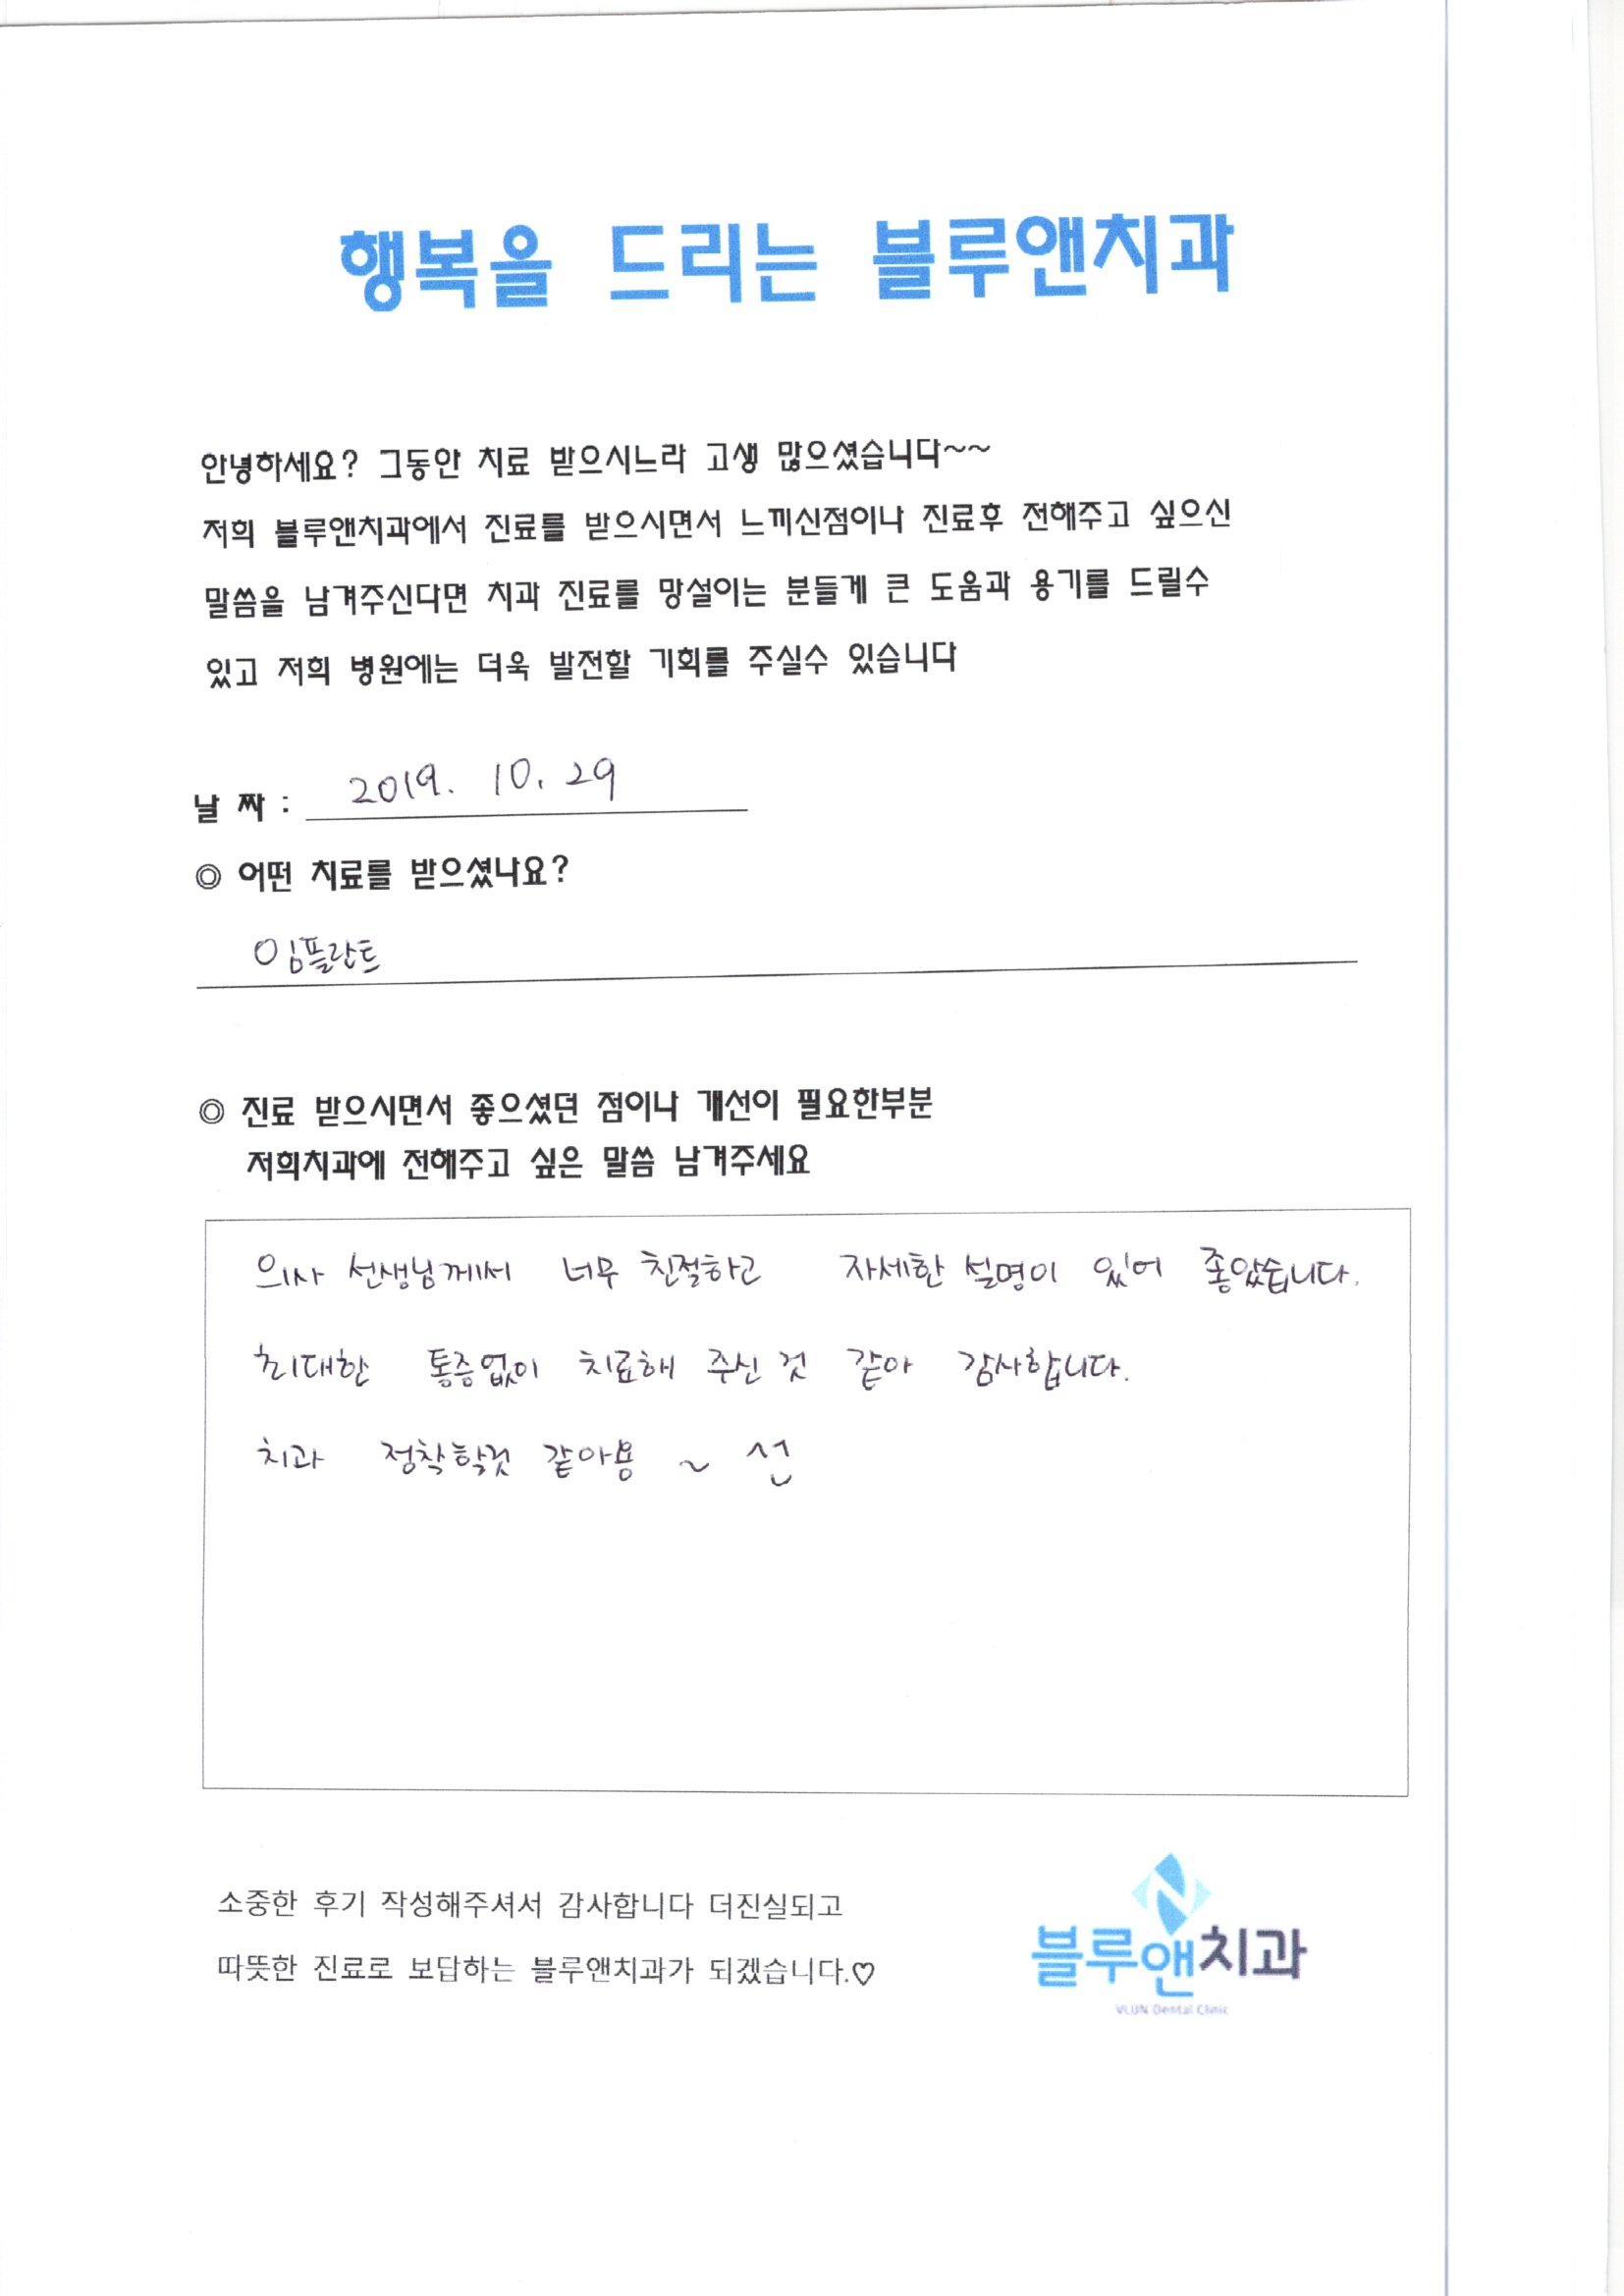 행복을 드리는 블루앤치과
안녕하세요? 그동안 치료 받으시느라 고생 많으셨습니다~~
저희 블루앤치과에서 진료를 받으시면서 느끼신점이나 진료후 전해주고 싶으신
말씀을 남겨주신다면 치과 진료를 망설이는 분들게 큰 도움과 용기를 드릴수
있고 저희 병원에는 더욱 발전할 기회를 주실수 있습니다
날 짜 : 2019. 10. 29
◎ 어떤 치료를 받으셨나요?
임플란트
◎ 진료 받으시면서 좋으셨던 점이나 개선이 필요한부분
저희치과에 전해주고 싶은 말씀 남겨주세요
의사 선생님께서 너무 친절하고 자세한 설명이 있어 좋았습니다.
최대한 통증없이 치료해 주신 것 같아 감사합니다.
치과 정착할것 같아용 ~
소중한 후기 작성해주셔서 감사합니다 더진실되고
따뜻한 진료로 보답하는 블루앤치과가 되겠습니다.♡
블루앤치과
VLUN Dental Clinic